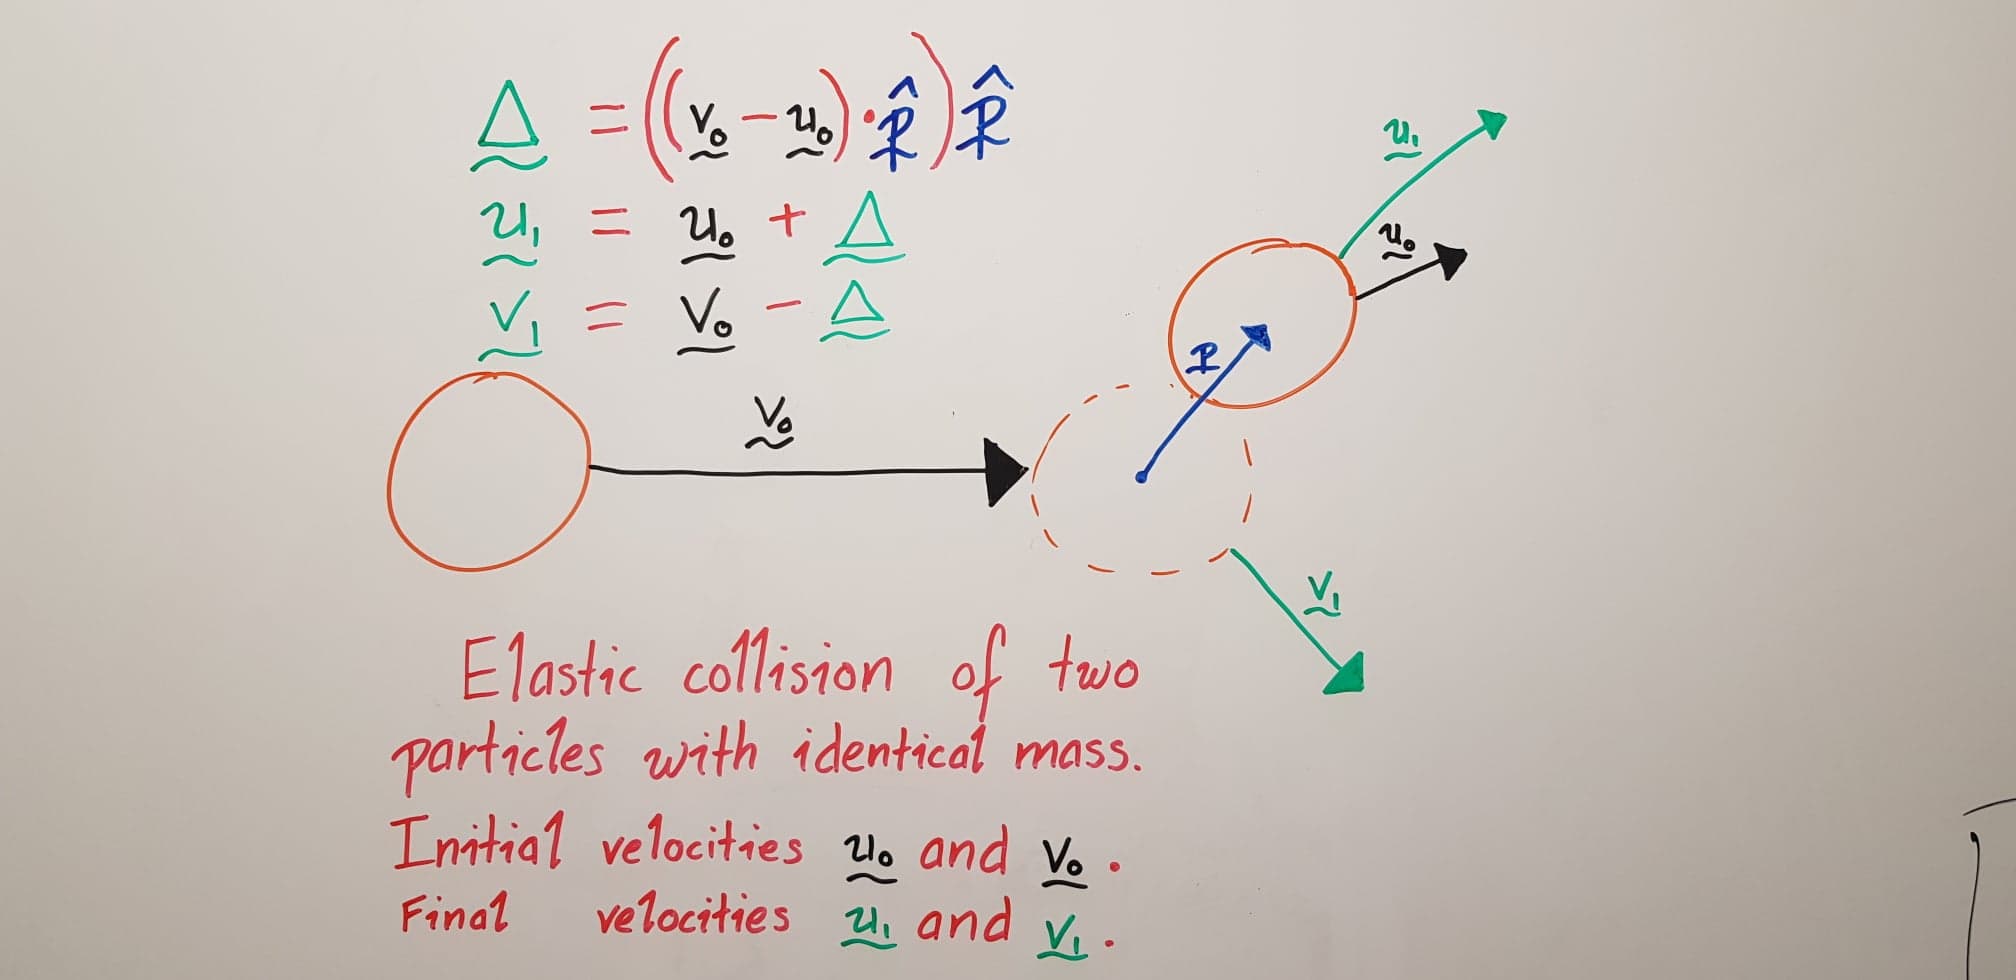 Δ = ((v₀ − u₀) · r̂) r̂
u₁ = u₀ + Δ
v₁ = v₀ − Δ
u₁
u₀
r
v₀
v₁
Elastic collision of two
particles with identical mass.
Initial velocities u₀ and v₀.
Final velocities u₁ and v₁.